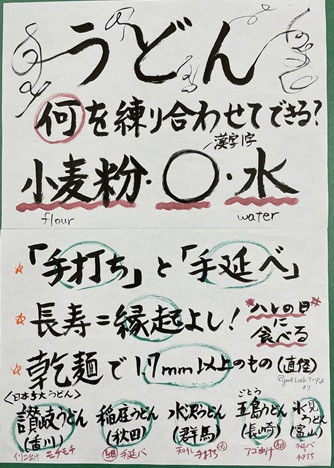 うどん
何を練り合わせてできる?
漢字1字
小麦粉・○・水
flour water
☆「手打ち」と「手延べ」
☆長寿=縁起よし!
ハレの日に食べる
☆乾麺で1.7mm以上のもの(直径)
〈日本5大うどん〉
讃岐うどん 稲庭うどん 水沢うどん 五島うどん 氷見うどん
ごとう
(香川) (秋田) (群馬) (長崎) (富山)
モチモチ 手延べ アゴ出汁 手延べ